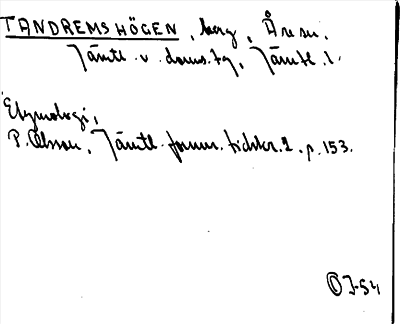 TANDREMSHÖGEN, berg, Åre sn.
Jämtl. v. doms.tg, Jämtl. l.
Etymologi,
P. Olsson, Jämtl. fornm. tidskr. 2. p. 153.
OJ-54